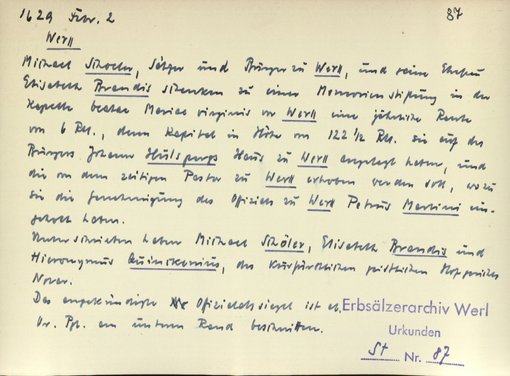 1629 Febr. 2 87
Werll
Michael Schoeler, Sälzer und Bürger zu Werll, und seine Ehefrau
Elisabeth Brandis schenken zu einer Memorienstiftung in der
Kapelle beatae Mariae virginis vor Werll eine jährliche Rente
von 6 Rt., deren Kapital in Höhe von 122 1/2 Rt. sie auf des
Bürgers Johann Hülsperps Haus zu Werll angelegt haben, und
die von dem zeitigen Pastor zu Werll erhoben werden soll, wozu
sie die Genehmigung des Offizials zu Werll Petrus Martini ein-
geholt haben.
Unterschrieben haben Michael Schöler, Elisabeth Brandis und
Hieronymus, des kurfürstlichen geistlichen Hofgerichts
Notar.
Das angekündigte Offizialatssiegel ist ab.
Or. Pgt. am unteren Rand beschnitten.
Erbsälzerarchiv Werl
Urkunden
St Nr. 87